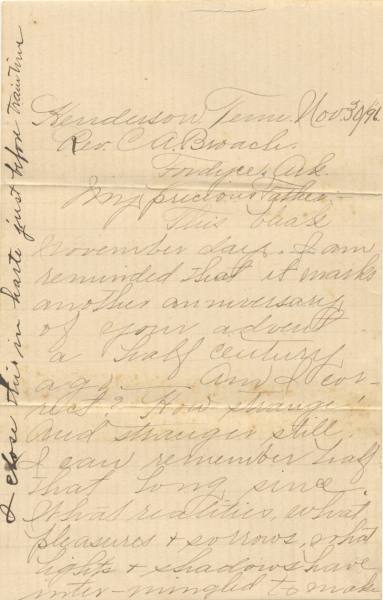 Henderson, Tenn. Nov. 30/96
Rev. C. A. Broach,
Fordyce, Ark.
My precious Father:—
This last
November day, I am
reminded that it marks
another anniversary
of your advent
a half century
ago — Am I cor-
rect? How strange!
And stranger still
I can remember half
that long since.
What realities, what
pleasures & sorrows, what
lights & shadows have
inter-mingled to make
I close this in haste just before train time